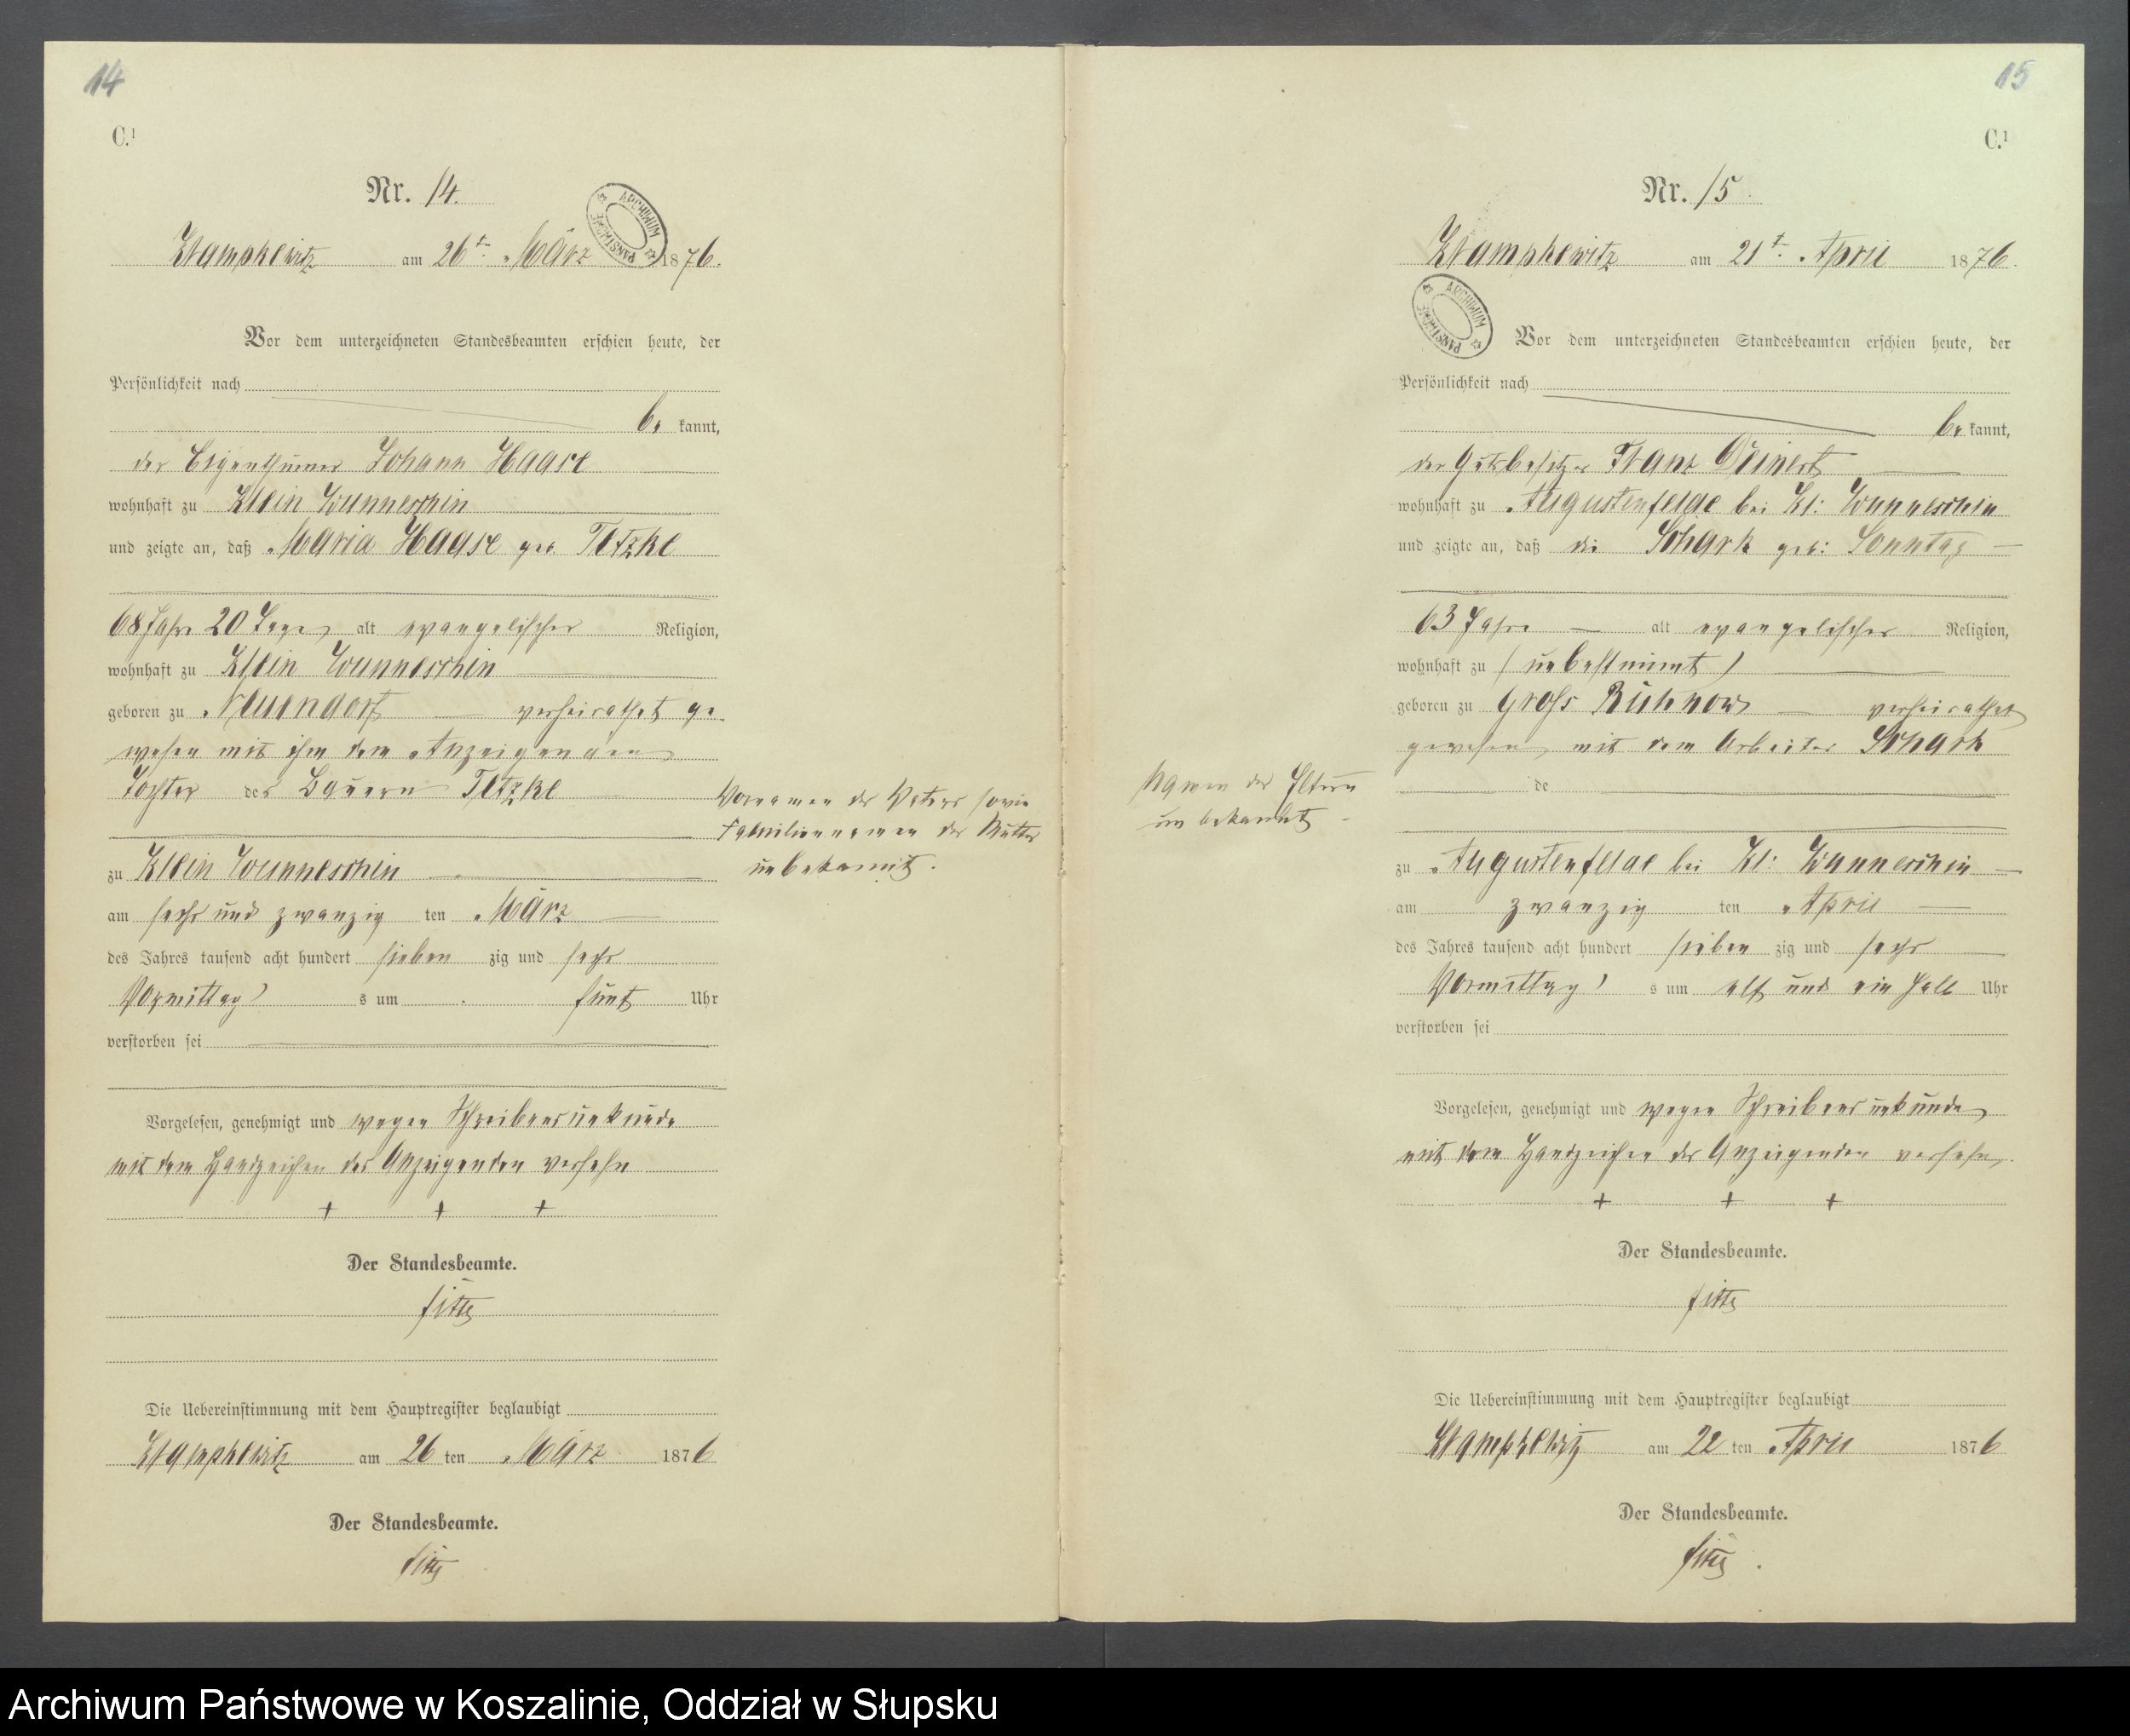 14
C.¹
Nr. 14.
ARCHIWUM PAŃSTWOWE
Krampkewitz am 26t. März 1876.
Vor dem unterzeichneten Standesbeamten erschien heute, der
Persönlichkeit nach
be kannt,
der Eigenthümer Johann Haase
wohnhaft zu Klein Wunneschin
und zeigte an, daß Maria Haase geb Tetzke
68 Jahre 20 Tage alt evangelischer Religion,
wohnhaft zu Klein Wunneschin
geboren zu Neuendorf verheirathet ge
wesen mit ihm dem Anzeigenden
Tochter des Bauern Tetzke
Vornamen des Vaters sowie
Familiennamen der Mutter
unbekannt.
zu Klein Wunneschin
am sechs und zwanzig ten März
des Jahres tausend acht hundert sieben zig und sechs
Vormittag s um fünf Uhr
verstorben sei
Vorgelesen, genehmigt und wegen Schreibensunkunde
mit dem Handzeichen des Anzeigenden versehn
+ + +
Der Standesbeamte.
Die Uebereinstimmung mit dem Hauptregister beglaubigt
Krampkewitz am 26 ten März 1876
Der Standesbeamte.
15
C.¹
Nr. 15.
Krampkewitz am 21t. April 1876.
ARCHIWUM PAŃSTWOWE
Vor dem unterzeichneten Standesbeamten erschien heute, der
Persönlichkeit nach
be kannt,
der Gutsbesitzer Franz
wohnhaft zu Augustenfelde bei Kl: Wunneschin
und zeigte an, daß die Schark geb: Sonntag
63 Jahre alt evangelischer Religion,
wohnhaft zu (unbestimmt)
geboren zu Gross Ruhnow verheirathet
gewesen mit dem Arbeiter Schark
de
Namen der Eltern
unbekannt
zu Augustenfelde bei Kl: Wunneschin
am zwanzig ten April
des Jahres tausend acht hundert sieben zig und sechs
Vormittag s um elf und ein halb Uhr
verstorben sei
Vorgelesen, genehmigt und wegen Schreibensunkunde
mit dem Handzeichen des Anzeigenden versehn.
+ + +
Der Standesbeamte.
Die Uebereinstimmung mit dem Hauptregister beglaubigt
Krampkewitz am 22 ten April 1876
Der Standesbeamte.
Archiwum Państwowe w Koszalinie, Oddział w Słupsku